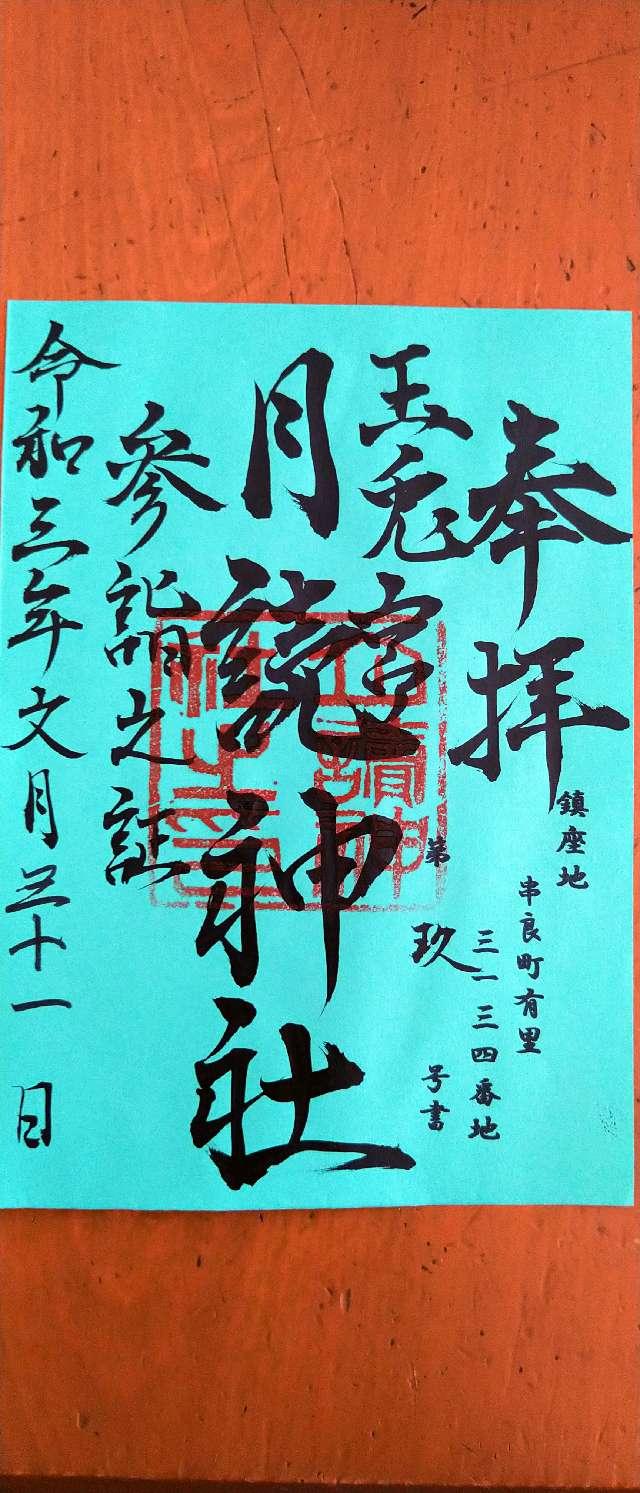 奉拝
鎮座地
串良町有里
三一三四番地
第玖号書
玉兎宮
月読神社
参詣之証
令和三年文月三十一日